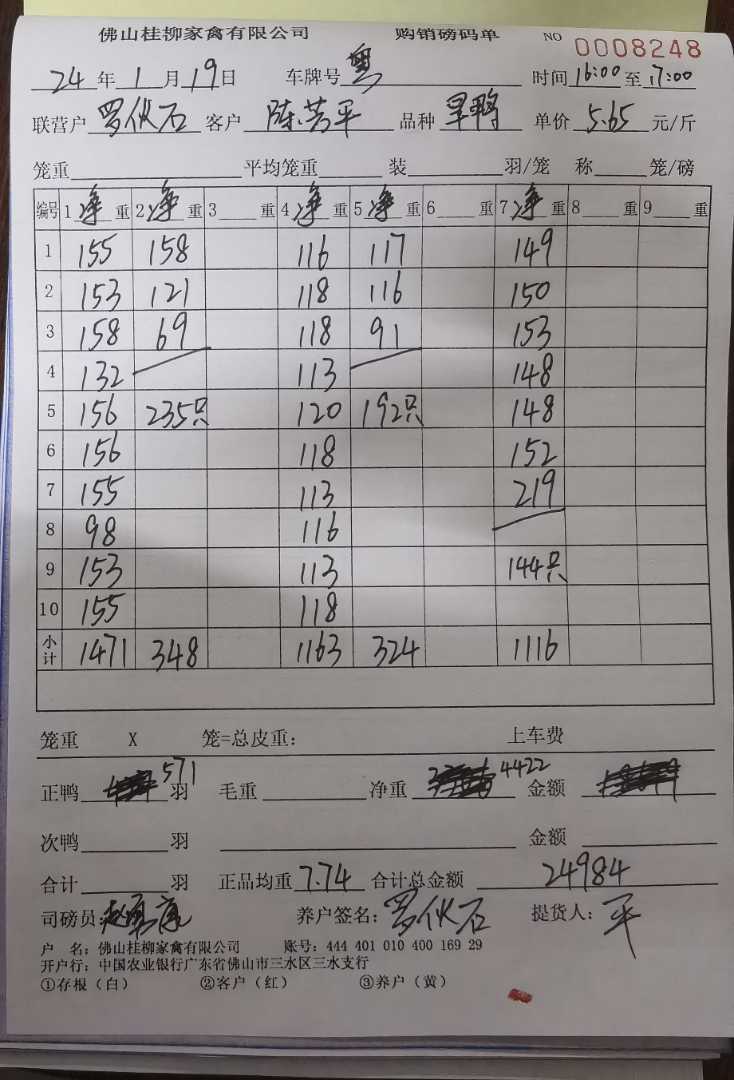 佛山桂柳家禽有限公司 购销磅码单 NO 0008248
24年1月19日 车牌号 粤 时间16:00至17:00
联营户 罗伙石 客户 陈芳平 品种 旱鸭 单价 5.65 元/斤
笼重 平均笼重 装 羽/笼 称 笼/磅
编号 1净重 2净重 3重 4净重 5净重 6重 7净重 8重 9重
1 155 158 116 117 149
2 153 121 118 116 150
3 158 69 118 91 153
4 132 113 148
5 156 235只 120 192只 148
6 156 118 152
7 155 113 219
8 98 116
9 153 113 144只
10 155 118
小计 1471 348 1163 324 1116
笼重 X 笼=总皮重: 上车费
正鸭 571 羽 毛重 净重 4422 金额
次鸭 羽 金额
合计 羽 正品均重 7.74 合计总金额 24984
司磅员: 养户签名: 罗伙石 提货人: 平
户 名: 佛山桂柳家禽有限公司 账号: 444 401 010 400 169 29
开户行: 中国农业银行广东省佛山市三水区三水支行
①存根(白) ②客户(红) ③养户(黄)